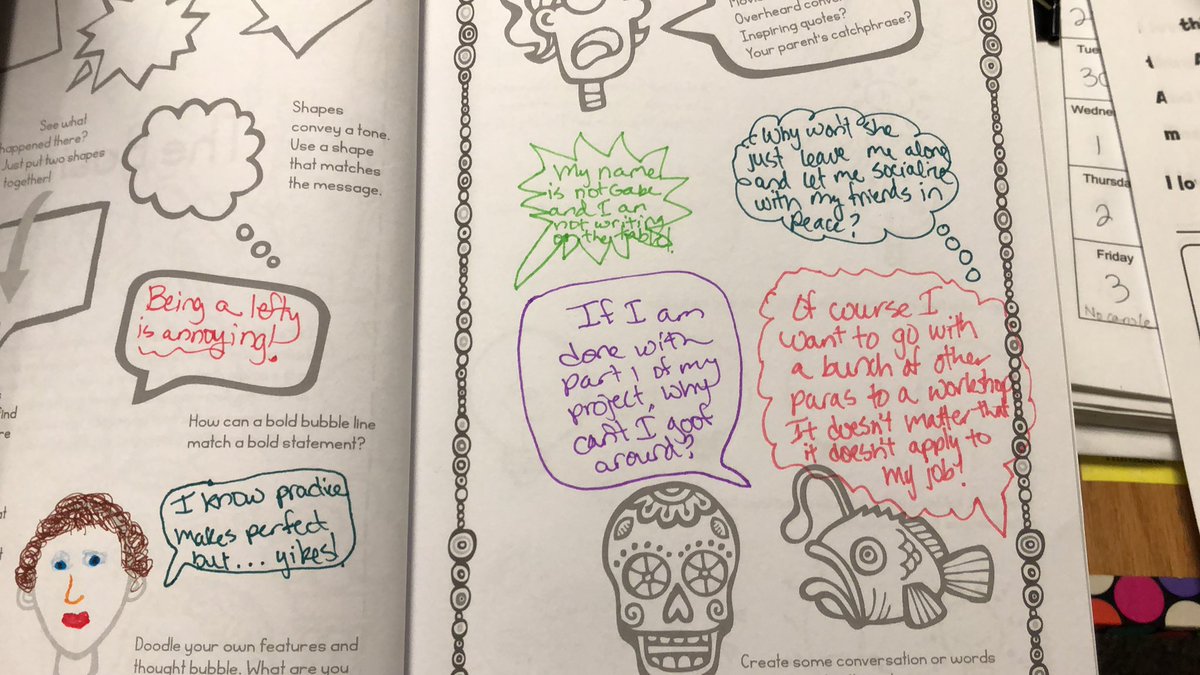 See what
happened there?
Just put two shapes
together!
Shapes
convey a tone.
Use a shape
that matches
the message.
Being a lefty
is annoying!
How can a bold bubble line
match a bold statement?
I know practice
makes perfect
but... yikes!
Doodle your own features and
thought bubble. What are you
Overheard
Inspiring quotes?
Your parent's catchphrase?
My name
is not Gabe
and I am
not writing
on the table!
Why won't she
just leave me alone
and let me socialize
with my friends in
peace?
If I am
done with
part 1 of my
project, why
can't I goof
around?
Of course I
want to go with
a bunch of other
paras to a workshop
It doesn't matter that
it doesn't apply to
my job!
Create some conversation or words
2
Tue
30
Wedne
1
Thursda
2
Friday
3
A
m
I lo